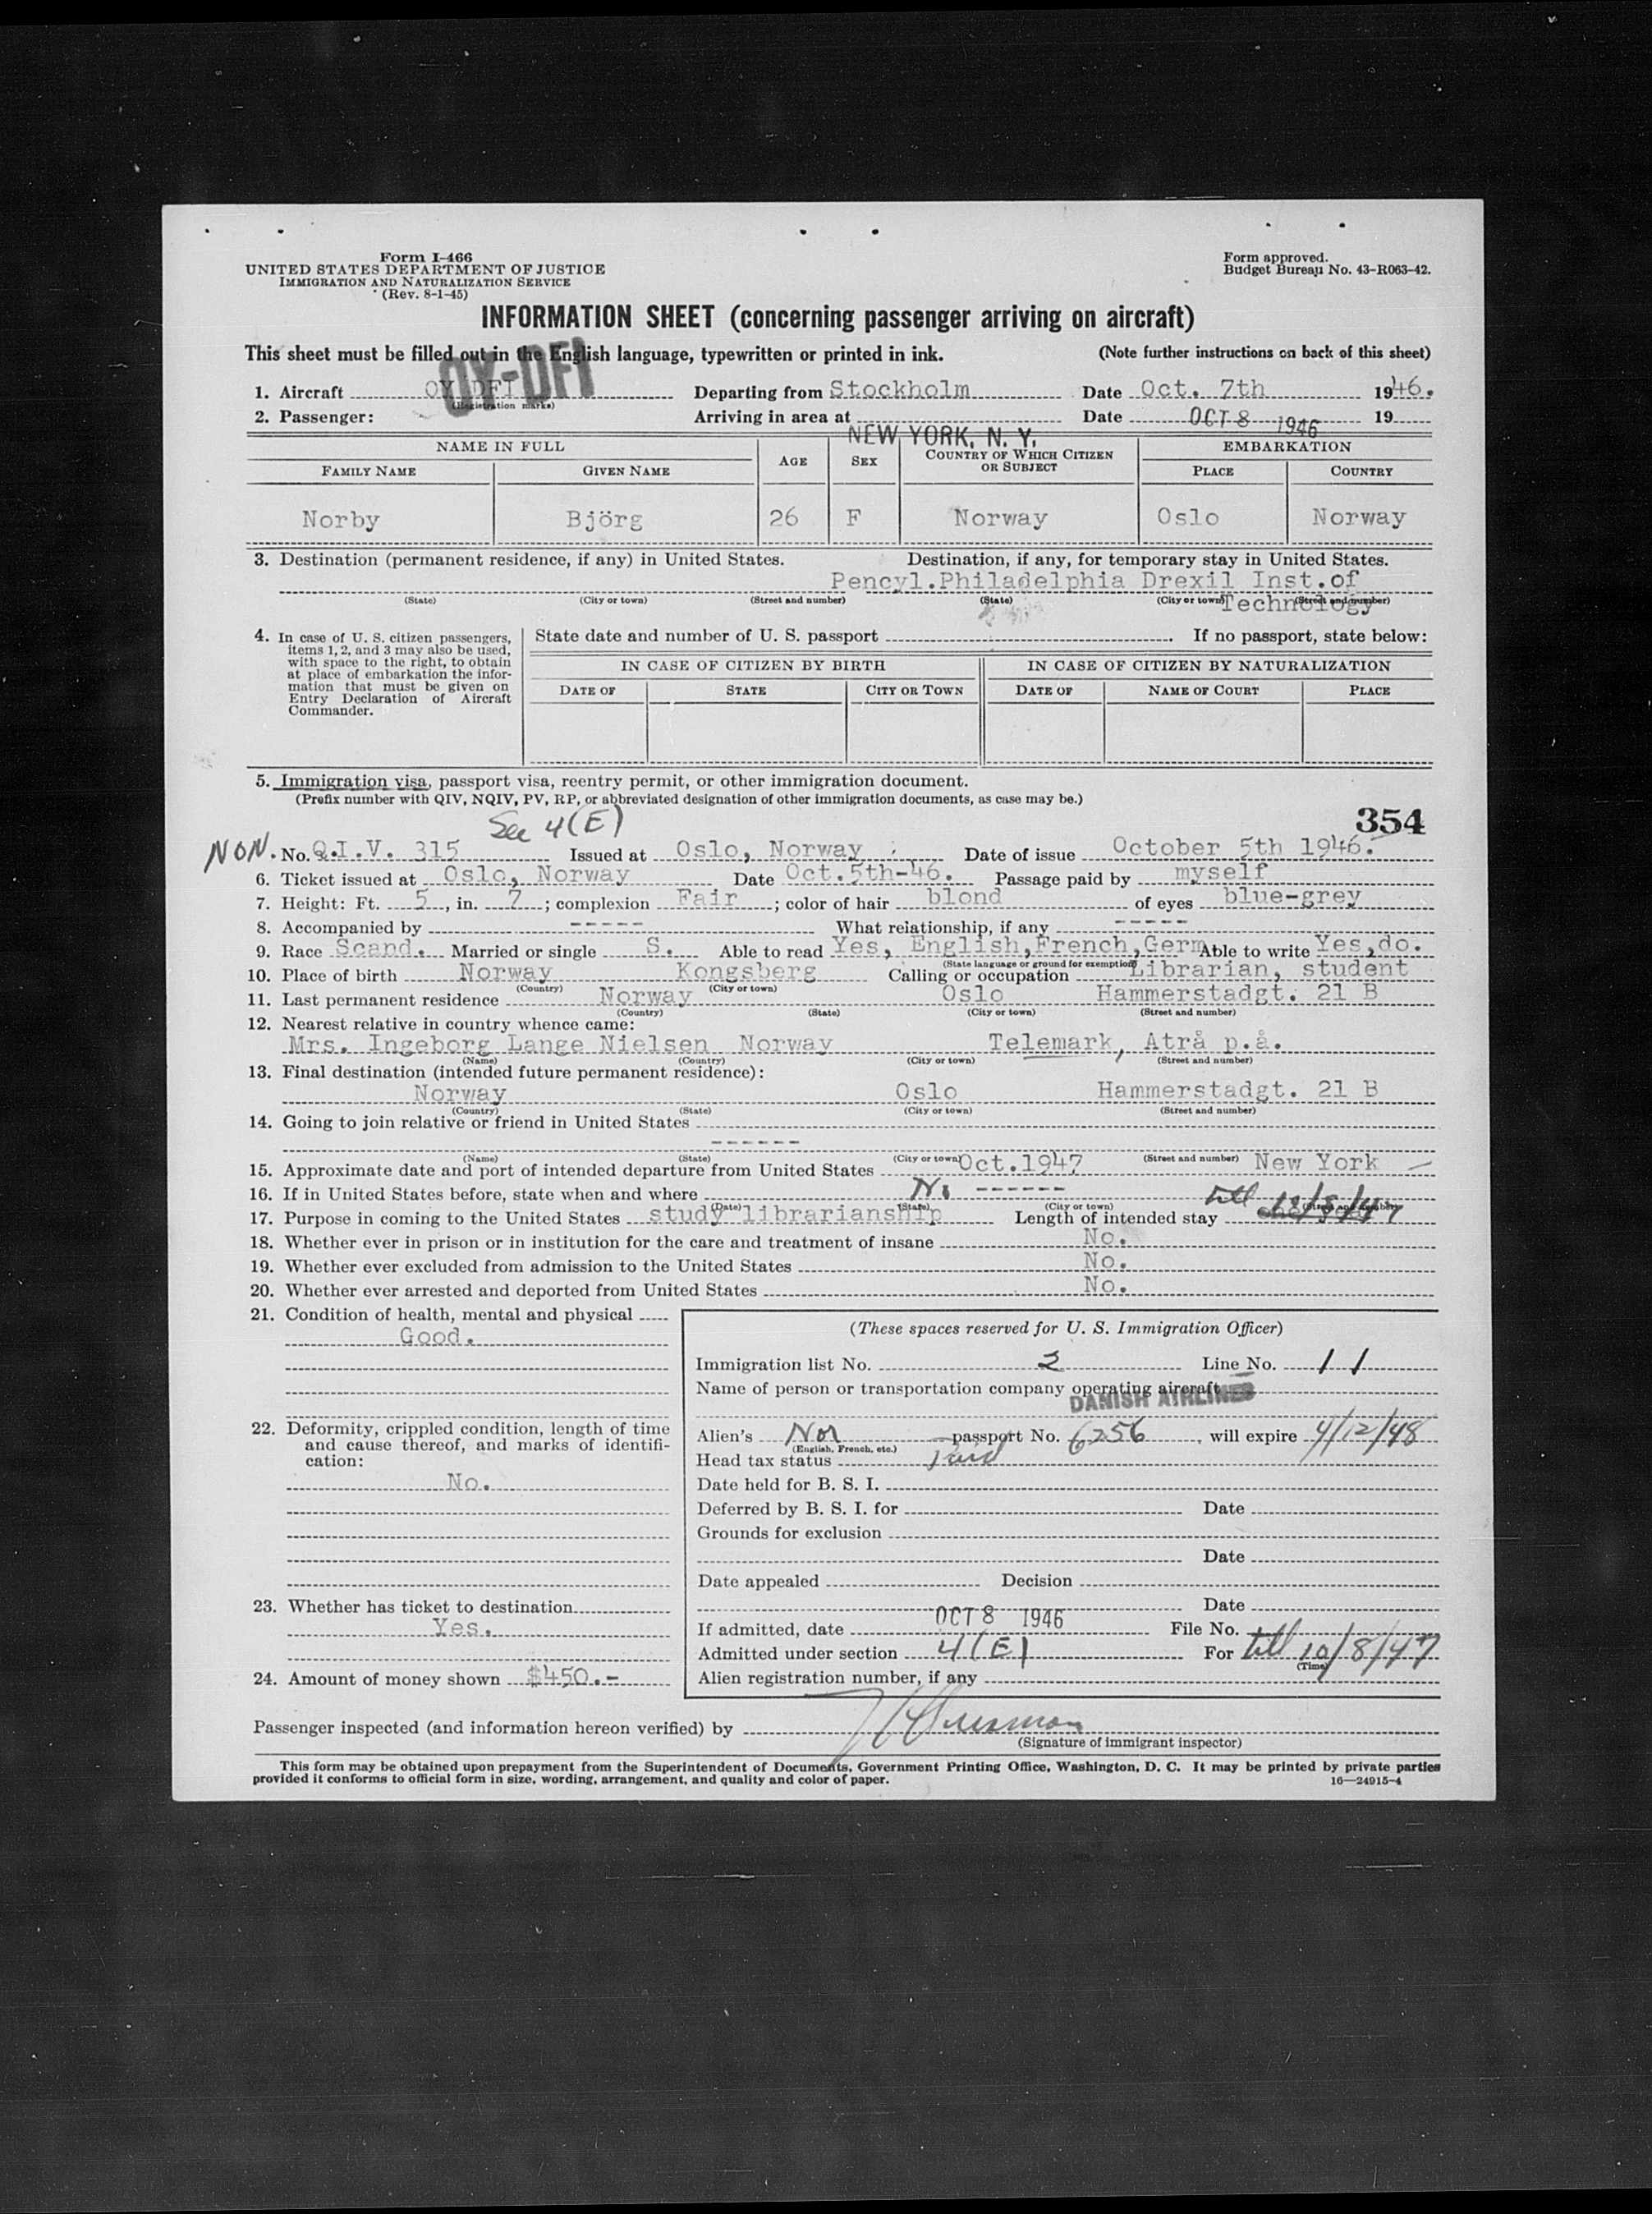 Form I-466
UNITED STATES DEPARTMENT OF JUSTICE
IMMIGRATION AND NATURALIZATION SERVICE
(Rev. 8-1-45)
Form approved.
Budget Bureau No. 43-R063-42.
INFORMATION SHEET (concerning passenger arriving on aircraft)
This sheet must be filled out in the English language, typewritten or printed in ink. (Note further instructions on back of this sheet)
OY-DFI
1. Aircraft OY DFI Departing from Stockholm Date Oct. 7th 1946.
(Registration marks)
2. Passenger: Arriving in area at NEW YORK, N. Y. Date OCT 8 1946 19
NAME IN FULL AGE SEX COUNTRY OF WHICH CITIZEN OR SUBJECT EMBARKATION
FAMILY NAME GIVEN NAME PLACE COUNTRY
Norby Björg 26 F Norway Oslo Norway
3. Destination (permanent residence, if any) in United States. Destination, if any, for temporary stay in United States.
Pencyl.Philadelphia Drexil Inst.of
(State) (City or town) (Street and number) (State) (City or town) (Street and number)
Technology
4. In case of U. S. citizen passengers, items 1, 2, and 3 may also be used, with space to the right, to obtain at place of embarkation the information that must be given on Entry Declaration of Aircraft Commander.
State date and number of U. S. passport If no passport, state below:
IN CASE OF CITIZEN BY BIRTH IN CASE OF CITIZEN BY NATURALIZATION
DATE OF STATE CITY OR TOWN DATE OF NAME OF COURT PLACE
5. Immigration visa, passport visa, reentry permit, or other immigration document.
(Prefix number with QIV, NQIV, PV, RP, or abbreviated designation of other immigration documents, as case may be.)
354
Sec 4(E)
NON. No. Q.I.V. 315 Issued at Oslo, Norway Date of issue October 5th 1946.
6. Ticket issued at Oslo, Norway Date Oct.5th-46. Passage paid by myself
7. Height: Ft. 5, in. 7; complexion Fair; color of hair blond of eyes blue-grey
8. Accompanied by ----- What relationship, if any -----
9. Race Scand. Married or single S. Able to read Yes, English,French,Germ Able to write Yes,do.
(State language or ground for exemption)
10. Place of birth Norway Kongsberg Calling or occupation Librarian, student
(Country) (City or town)
11. Last permanent residence Norway Oslo Hammerstadgt. 21 B
(Country) (State) (City or town) (Street and number)
12. Nearest relative in country whence came:
Mrs. Ingeborg Lange Nielsen Norway Telemark, Atrå p.å.
(Name) (Country) (City or town) (Street and number)
13. Final destination (intended future permanent residence):
Norway Oslo Hammerstadgt. 21 B
(Country) (State) (City or town) (Street and number)
14. Going to join relative or friend in United States
------
(Name) (State) (City or town) (Street and number)
15. Approximate date and port of intended departure from United States Oct.1947 New York
16. If in United States before, state when and where No ------
(Date) (State) (City or town) (Street and number)
17. Purpose in coming to the United States study librarianship Length of intended stay till
18. Whether ever in prison or in institution for the care and treatment of insane No.
19. Whether ever excluded from admission to the United States No.
20. Whether ever arrested and deported from United States No.
21. Condition of health, mental and physical
Good.
22. Deformity, crippled condition, length of time and cause thereof, and marks of identification:
No.
23. Whether has ticket to destination
Yes.
24. Amount of money shown $450.-
(These spaces reserved for U. S. Immigration Officer)
Immigration list No. 2 Line No. 11
Name of person or transportation company operating aircraft
DANISH AIRLINES
Alien's Nor passport No. 6256, will expire 4/12/48
(English, French, etc.)
Head tax status Paid
Date held for B. S. I.
Deferred by B. S. I. for Date
Grounds for exclusion
Date
Date appealed Decision
Date
If admitted, date OCT 8 1946 File No.
Admitted under section 4(E) For till 10/8/47
(Time)
Alien registration number, if any
Passenger inspected (and information hereon verified) by
(Signature of immigrant inspector)
This form may be obtained upon prepayment from the Superintendent of Documents, Government Printing Office, Washington, D. C. It may be printed by private parties
provided it conforms to official form in size, wording, arrangement, and quality and color of paper. 16—24915-4